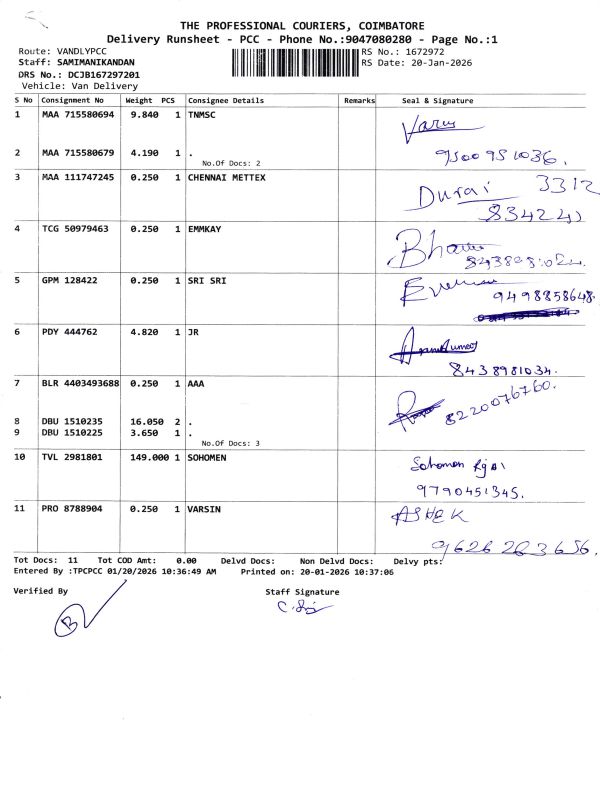 THE PROFESSIONAL COURIERS, COIMBATORE
Delivery Runsheet - PCC - Phone No.:9047080280 - Page No.:1
Route: VANDLYPCC RS No.: 1672972
Staff: SAMIMANIKANDAN RS Date: 20-Jan-2026
DRS No.: DCJB167297201
Vehicle: Van Delivery
S No Consignment No Weight PCS Consignee Details Remarks Seal & Signature
1 MAA 715580694 9.840 1 TNMSC Varun
2 MAA 715580679 4.190 1 . 9500951036.
No.Of Docs: 2
3 MAA 111747245 0.250 1 CHENNAI METTEX Durai 3312
4 TCG 50979463 0.250 1 EMMKAY
5 GPM 128422 0.250 1 SRI SRI
9498858648.
6 PDY 444762 4.820 1 JR
8438981034.
7 BLR 4403493688 0.250 1 AAA 8220076760.
8 DBU 1510235 16.050 2 .
9 DBU 1510225 3.650 1 .
No.Of Docs: 3
10 TVL 2981801 149.000 1 SOHOMEN Sohomen
9790451345.
11 PRO 8788904 0.250 1 VARSIN ASHEK
9626263656.
Tot Docs: 11 Tot COD Amt: 0.00 Delvd Docs: Non Delvd Docs: Delvy pts:
Entered By :TPCPCC 01/20/2026 10:36:49 AM Printed on: 20-01-2026 10:37:06
Verified By Staff Signature
B